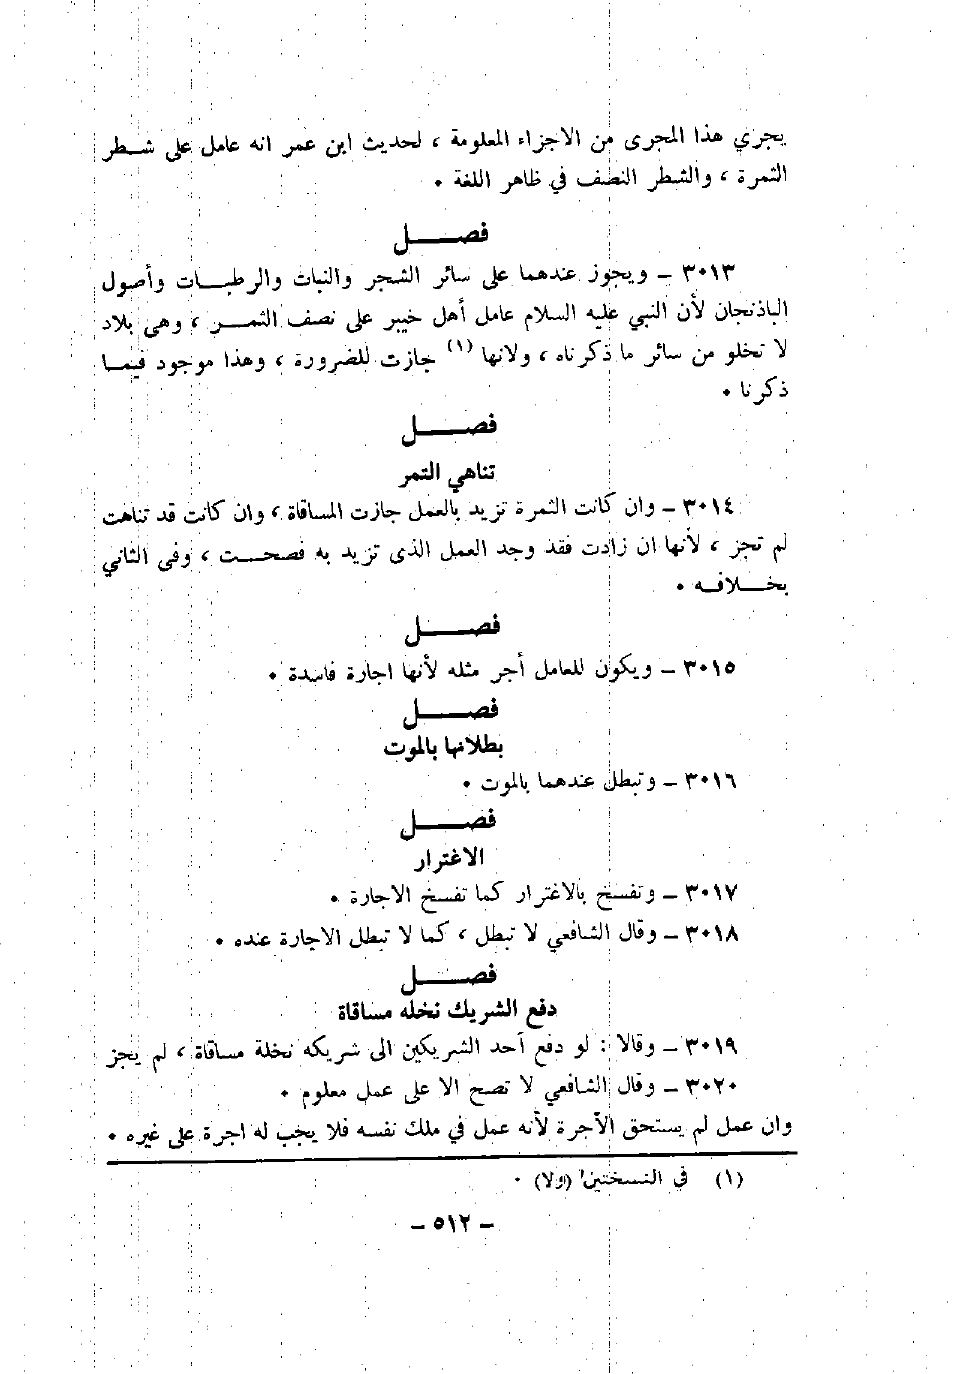 يجري هذا المجرى من الاجزاء المعلومة ، لحديث ابن عمر انه عامل على شطر
الثمرة ، والشطر النصف في ظاهر اللغة .
فصل
٣٠١٣ – ويجوز عندهما على سائر الشجر والنبات والرطبات وأصول
الباذنجان لأن النبي عليه السلام عامل أهل خيبر على نصف الثمر ، وهى بلاد
لا تخلو من سائر ما ذكرناه ، ولانها (١) جازت للضرورة ، وهذا موجود فيما
ذكرنا .
فصل
تناهي التمر
٣٠١٤ – وان كانت الثمرة تزيد بالعمل جازت المساقاة ، وان كانت قد تناهت
لم تجز ، لأنها ان زادت فقد وجد العمل الذى تزيد به فصحت ، وفى الثاني
بخلافه .
فصل
٣٠١٥ – ويكون للعامل أجر مثله لأنها اجارة فاسدة .
فصل
بطلانها بالموت
٣٠١٦ – وتبطل عندهما بالموت .
فصل
الاغترار
٣٠١٧ – وتفسخ بالاغترار كما تفسخ الاجارة .
٣٠١٨ – وقال الشافعي لا تبطل ، كما لا تبطل الاجارة عنده .
فصل
دفع الشريك نخله مساقاة
٣٠١٩ – وقالا : لو دفع أحد الشريكين الى شريكه نخلة مساقاة ، لم يجز
٣٠٢٠ – وقال الشافعي لا تصح الا على عمل معلوم .
وان عمل لم يستحق الأجرة لأنه عمل في ملك نفسه فلا يجب له اجرة على غيره .
(١) في النسختين (ولا) .
– ٥١٢ –